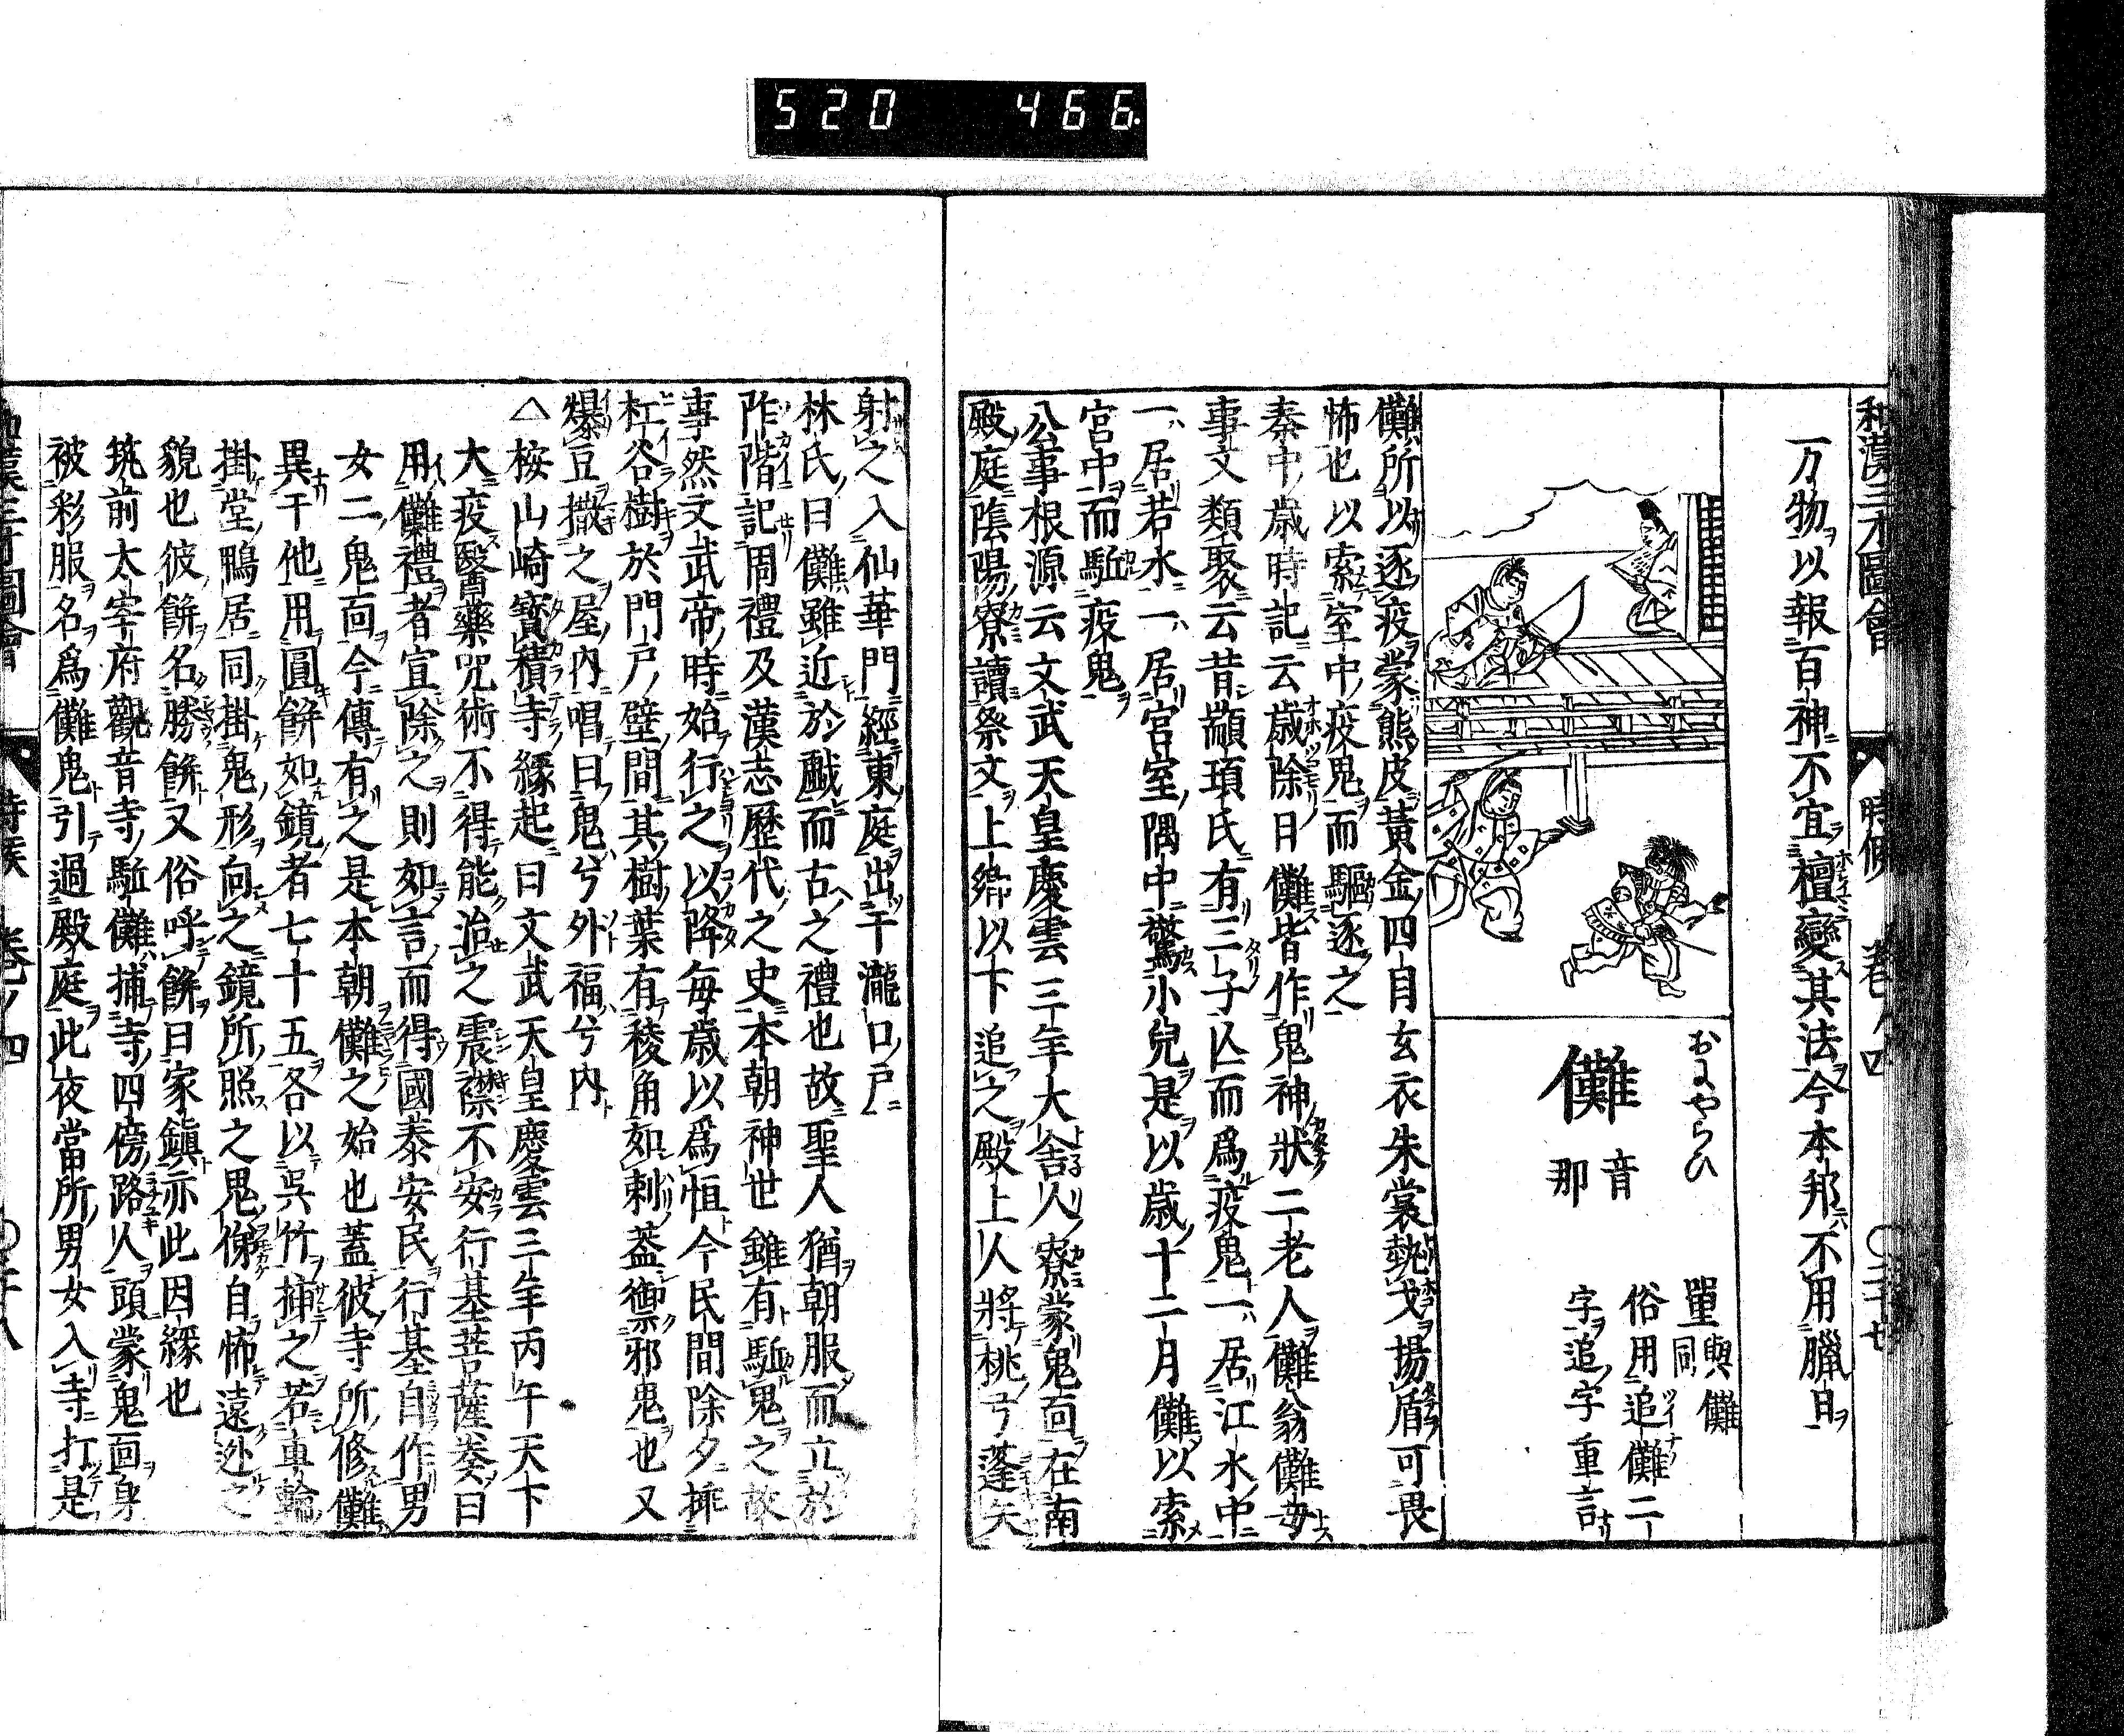 520 466
和漢三才圖會 時候 卷ノ四
万物以報百神不宜檀變其法今本邦不用臘日
おにやらひ
儺
音那
𩲡與儺同
俗用追儺二
字追字重言
儺所以逐疫蒙熊皮黃金四目玄衣朱裳執戈揚盾可畏
怖也以索室中疫鬼而驅逐之
秦中歲時記云歲除日儺皆作鬼神狀二老人儺翁儺母
事文類聚云昔顓頊氏有三子亾而爲疫鬼一居江水中
一居若水一居宮室隅中驚小兒是以歲十二月儺以索
宮中而駈疫鬼
公事根源云文武天皇慶雲三年大舍人寮蒙鬼面在南
殿庭隂陽寮讀祭文上卿以下追之殿上人將桃弓蓬矢
射之入仙華門經東庭出于瀧口戸
林氏曰儺雖近於戲而古之禮也故聖人猶朝服而立於
阼階記周禮及漢志歷代之史本朝神世雖有駈鬼之故
事然文武帝時始行之以降毎歲以爲恒今民間除夕揷
杠谷樹於門戸壁間其樹葉有稜角如刺蓋禦邪鬼也又
爆豆撒之屋內唱曰鬼兮外福兮內
△桉山崎寳積寺緣起曰文武天皇慶雲三年丙午天下
大疫醫藥咒術不得能治之震襟不安行基菩薩奏曰
用儺禮者宜除之則如言而得國泰安民行基自作男
女二鬼面今傳有之是本朝儺之始也蓋彼寺所修儺
異于他用圓餅如鏡者七十五各以吳竹揷之若車輪
掛堂鴨居同掛鬼形向之鏡所照之鬼俤自怖遠迯之
貌也彼餅名勝餅又俗呼餅曰家鎮亦此因緣也
筑前太宰府觀音寺駈儺捕寺四傍路人頭蒙鬼面身
被彩服名爲儺鬼引過殿庭此夜當所男女入寺打是
和漢三才圖會 時候 卷ノ四